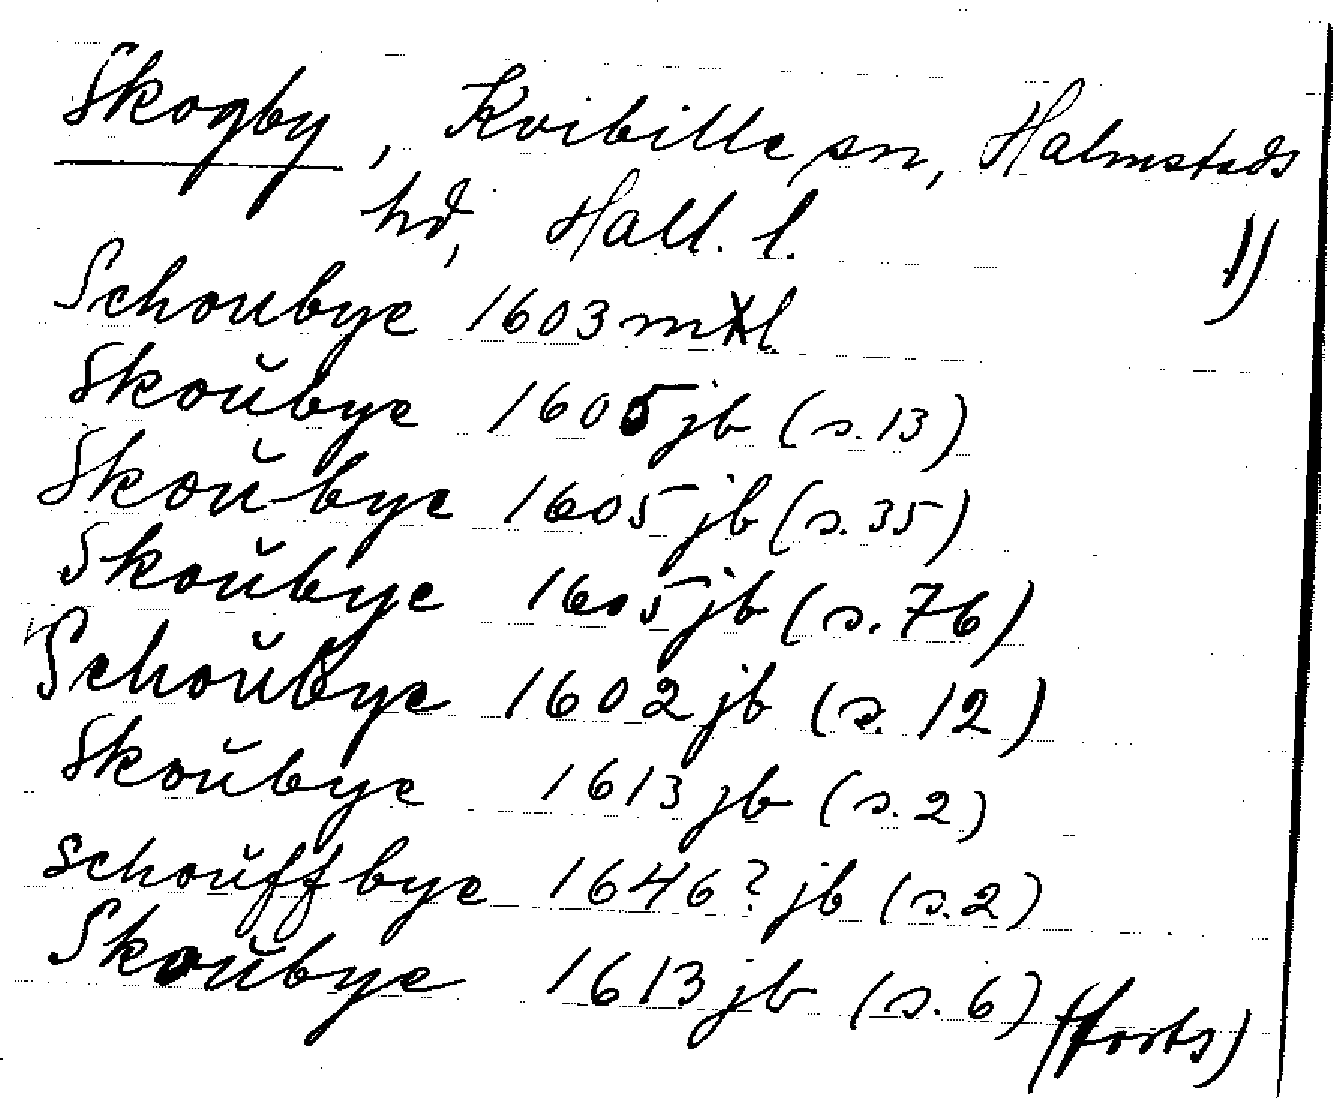 Skogby, Kvibille sn, Halmstads
hd, Hall. l.
1)
Schoubye 1603 mtl
Skoŭbye 1605 jb (s. 13)
Skoŭbye 1605 jb (s. 35)
Skoŭbye 1605 jb (s. 76)
Schoŭbye 1602 jb (s. 12)
Skoŭbye 1613 jb (s. 2)
Schoŭffbye 1646? jb (s. 2)
Skoŭbye 1613 jb (s. 6)
(forts)